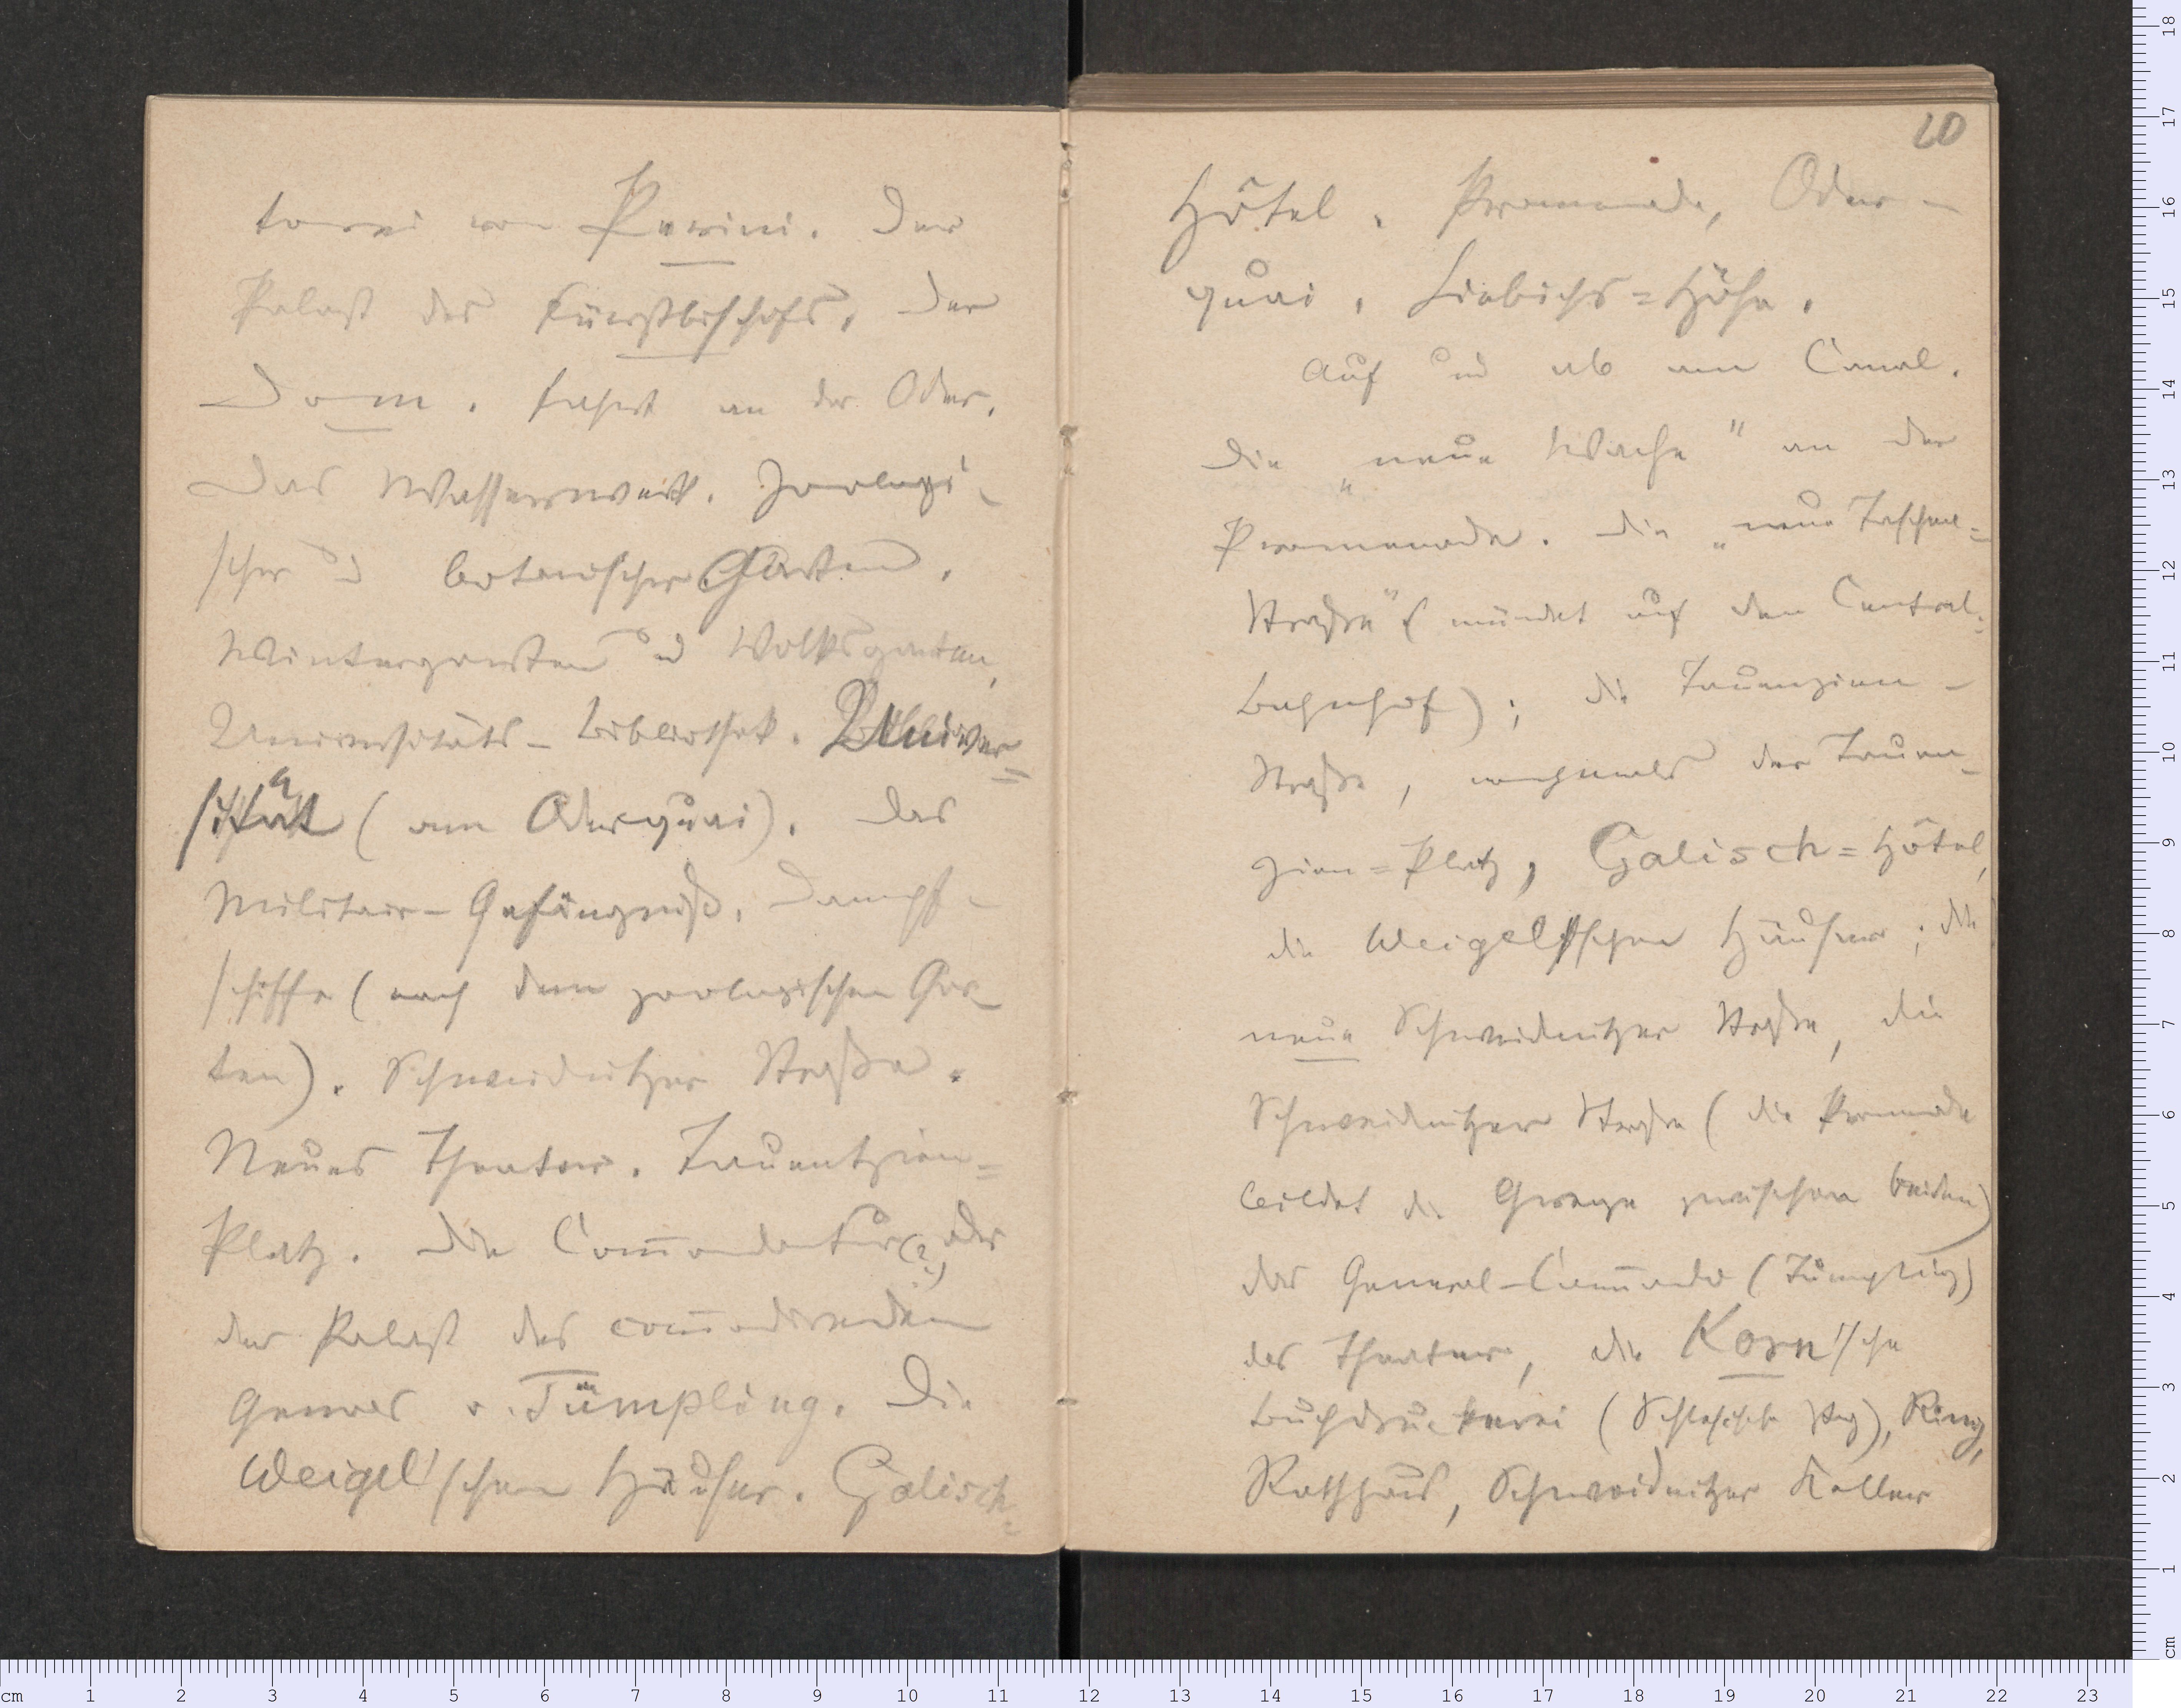 torei von Perini. Der
Palast des Fürstbischofs, der
Dom. Fahrt an der Oder.
Das Wasserwerk. Zoologi-
scher u botanischer Garten.
Wintergarten u Volksgarten,
Universitäts-Bibliothek. Univer=
sität (am Oderquai). Das
Militair-Gefängniß. Dampf-
schiffe (nach dem zoologischen Gar-
ten). Schweidnitzer Straße.
Neues Theater. Tauentzien=
Platz. Die Com̅andantur(?) oder
der Palast des com̅andirenden
Generals v. Tümpling. Die
Weigel'schen Häuser. Galisch=
20
Hôtel. Promenade, Oder-
quai, Liebichs=Höhe.
Auf und ab am Canal.
Die „neue Wache" an der
Promenade. Die „neue Taschen=
Straße" (mündet auf den Central=
bahnhof); die Tauenzien-
Straße, der Tauen-
zien=Platz, Galisch=Hôtel,
die Weigelschen Häuser; die
neue Schweidnitzer Straße, die
Schweidnitzer Straße (die Promenade
bildet die Grenze zwischen beiden)
das General-Com̅ando (Tümpling)
das Theater, die Korn'sche
Buchdruckerei (Schlesische Ztg), Ring,
Rathhaus, Schweidnitzer Keller
cm 1 2 3 4 5 6 7 8 9 10 11 12 13 14 15 16 17 18 19 20 21 22 23
cm 1 2 3 4 5 6 7 8 9 10 11 12 13 14 15 16 17 18